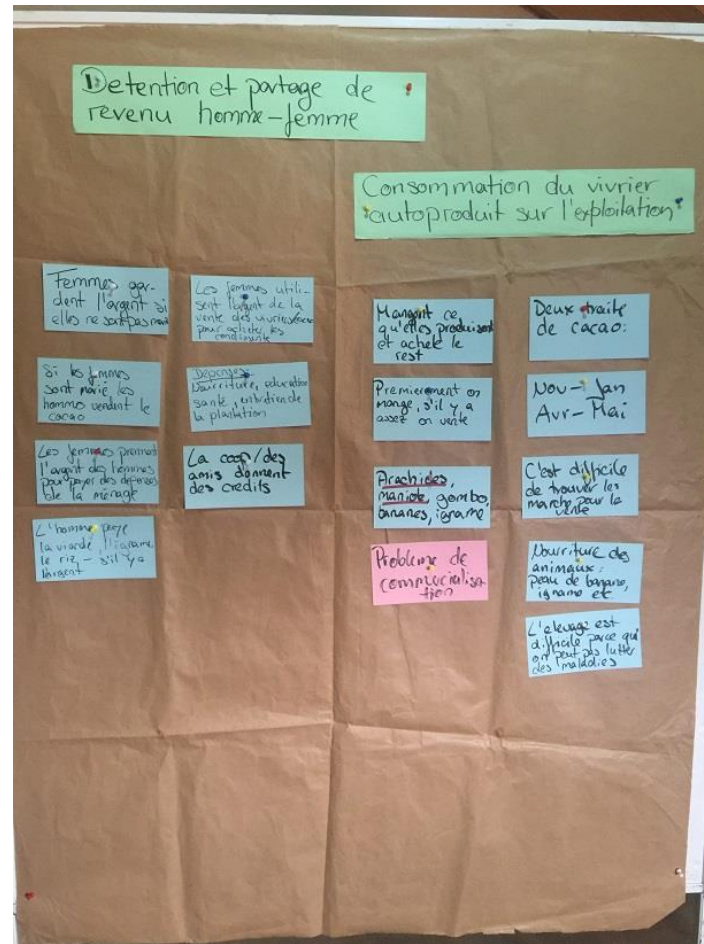 Detention et partage de
revenu homme-femme
Consommation du vivrier
autoproduit sur l'exploitation
Femmes gar-
dent l'argent si
elles ne sont pas marié
Si les femmes
sont marié les
hommes vendent le
cacao
Les femmes prennent
l'argent des hommes
pour payer des depenses
de la ménage
L'homme paye
la viande, l'igname,
le riz, - s'il y a
l'argent
Les femmes utili-
sent l'argent de la
vente des vivriers
pour acheter les
condiments
Depenses:
Nourriture, education
santé, entretien de
la plantation
La coop/des
amis donnent
des credits
Mangent ce
qu'elles produisent
et achete le
rest
Premierement on
mange, s'il y, a
assez on vente
Arachides,
maniok, gombo,
bananes, igname
Probleme de
commercialisa-
tion
Deux traite
de cacao:
Nov - Jan
Avr - Mai
C'est difficile
de trouver les
marché pour la
vente
Nourriture des
animaux:
peau de banane,
igname etc
L'elevage est
difficile parce qu'
on peut pas lutter
des maladies